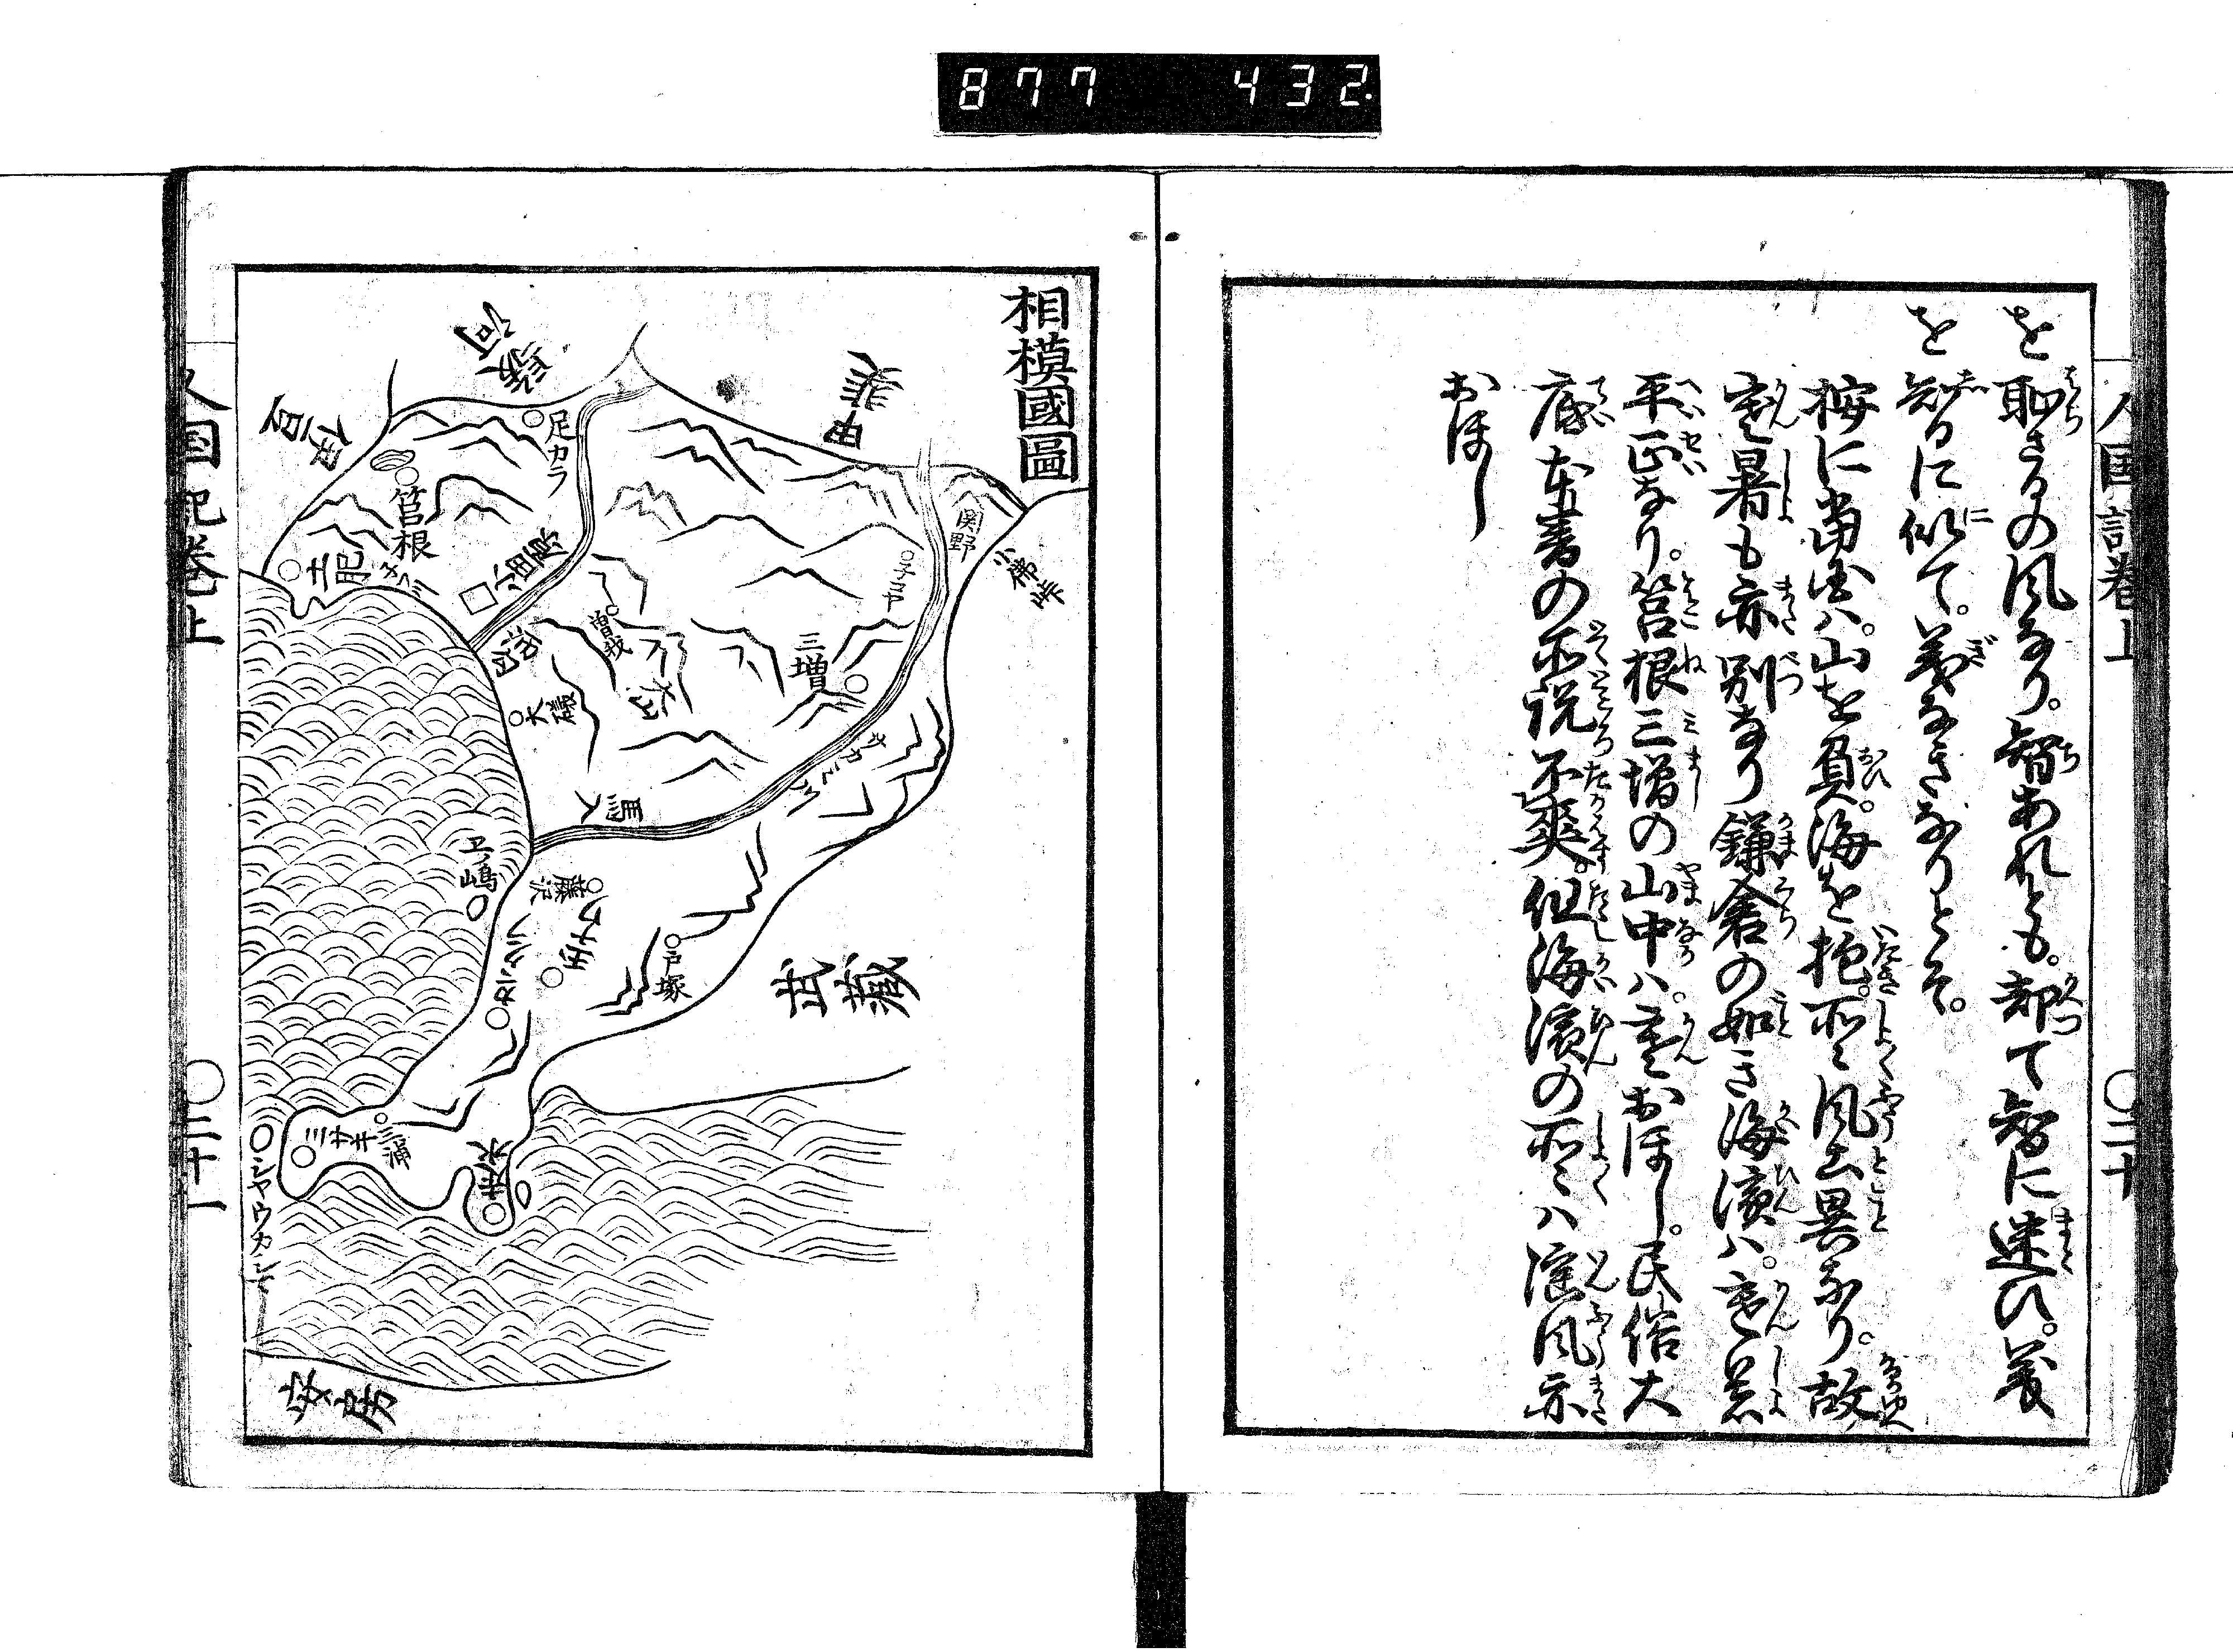 877 432
人国記巻上
〇二十
を恥さるの風なり。智あれとも。却て智に迷ひ。義
を知るに似て。義なきなりとそ。
按に当国ハ。山を負。海を抱。所〻風土異なり。故
寒暑も亦別なり鎌倉の如き海濱ハ。寒暑
平正なり。筥根三増の山中ハ。寒おほし。民俗大
底本書の所説不爽。但海濱の所〻ハ淫風亦
おほし
相模國圖
甲斐
駿河
伊豆
足カラ
筥根
土肥
小田原
関野
小佛峠
曽我
大山
三増
大磯
八幡
ヱ嶋
藤沢
戸塚
武蔵
三浦
ミサキ
安房
人国記巻上
〇二十一